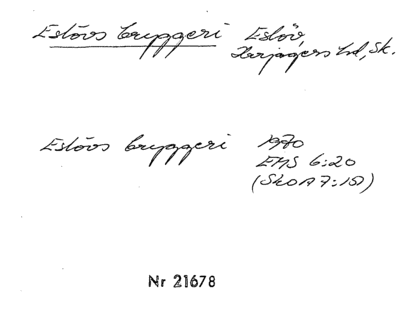 Eslövs bryggeri Eslöv,
Harjagers hd, Sk.
Eslövs bryggeri 1970
EMS 6:20
(SkOA 7:151)
Nr 21678